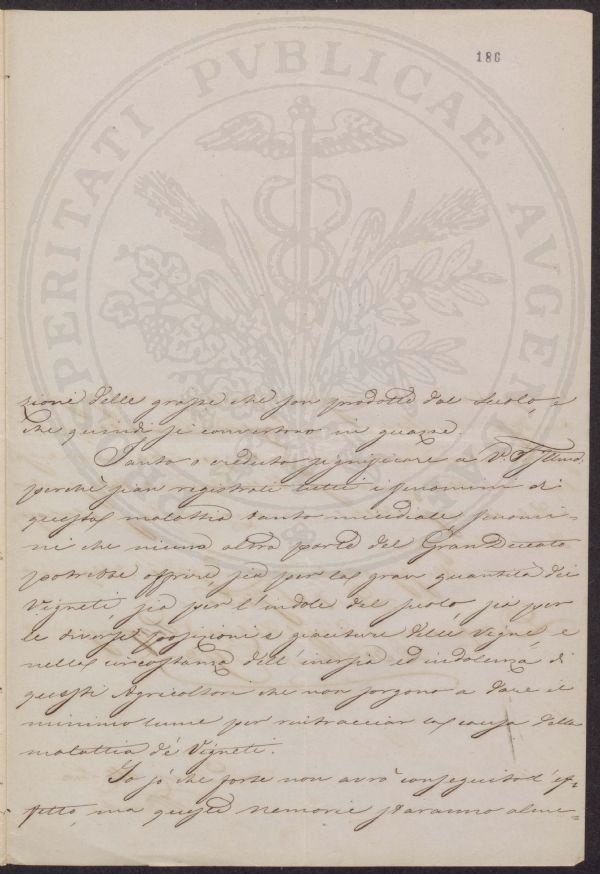 186
PROSPERITATI PVBLICAE AVGENDAE
zione delle grappe che son prodotte dal suolo, e
che quindi si convertono in guasse.
Tanto o creduto significare a V. S. Illma.
perchè sian registrati tutti i fenomini di
questa malattia tanto micidiale, fenomi-
ni che niuna altra parte del GranDucato
potrebbe offrire, sia per la gran quantità dei
Vigneti, sia per l'indole del suolo, sia per
le diverse posizioni e giaciture delle Vigne, e
nella circostanza dell'inerzia ed indolenza di
questi Agricoltori che non sorgono a dare il
minimo lume per rintracciar la causa della
malattia de' Vigneti.
Io sò che forse non avrò conseguito l'ef-
fetto, ma queste memorie staranno alme=